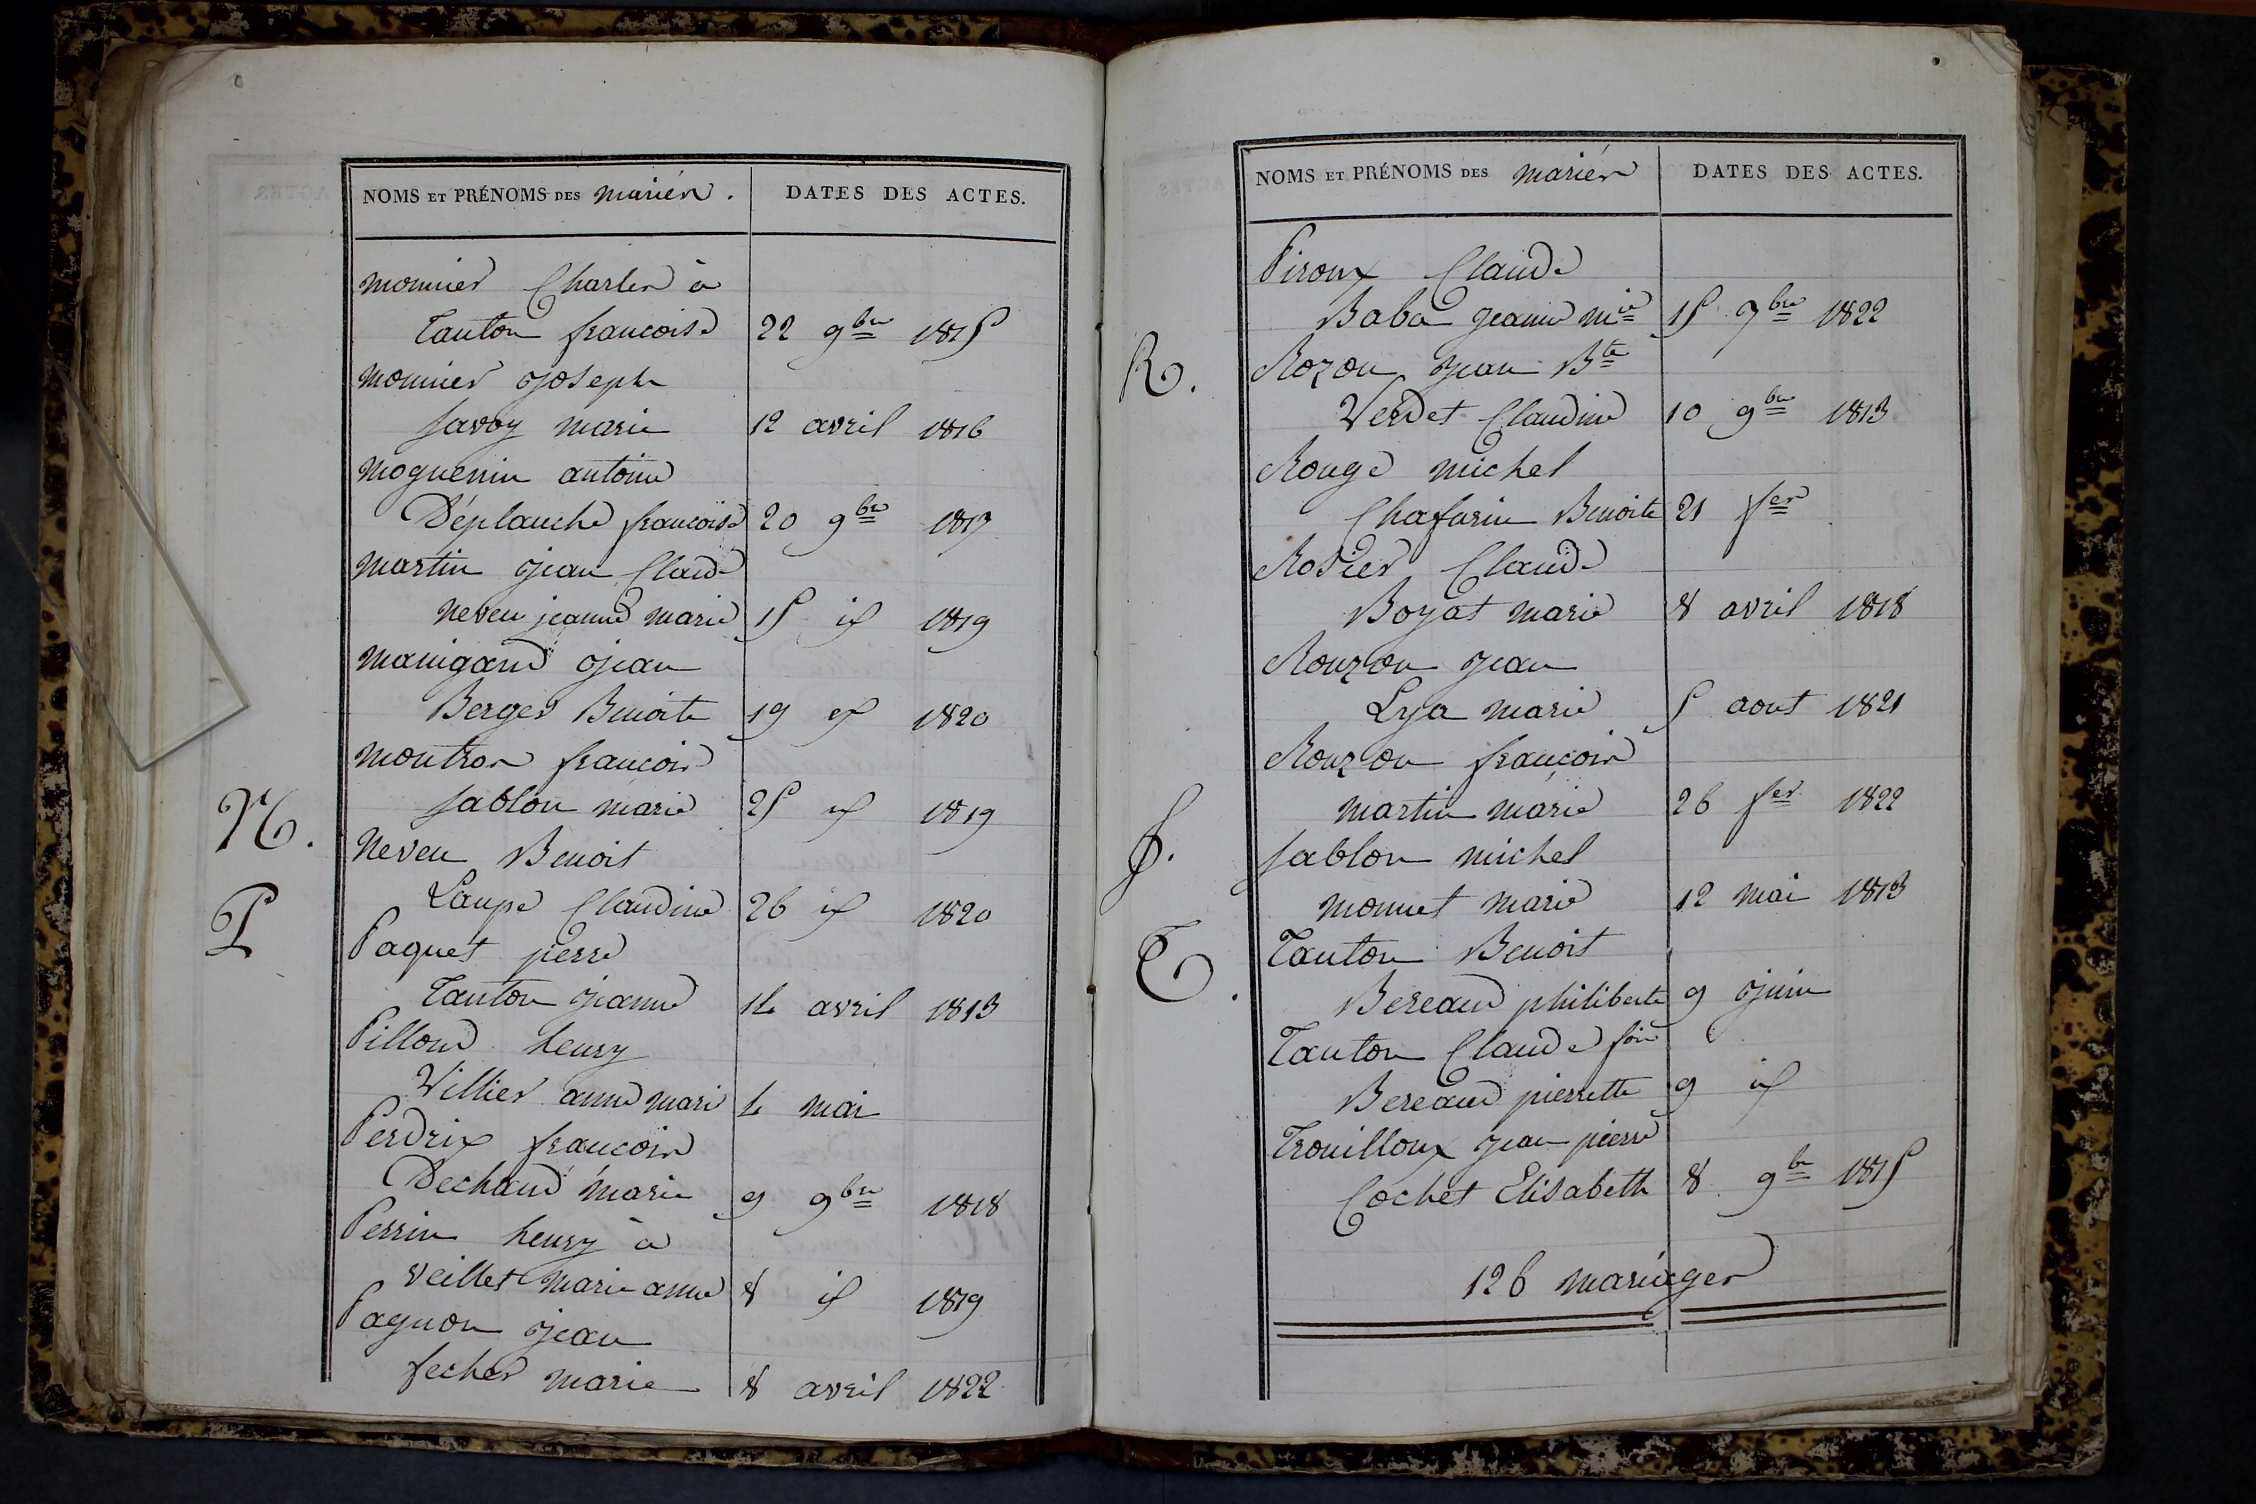 NOMS ET PRÉNOMS DES mariés. DATES DES ACTES.
monnier Charles à
Tanton francoise 22 9bre 1815
monnier joseph
Savoy marie 12 avril 1816
moguenin antoine
Déplanche francoise 20 9bre 1817
martin jean Claude
neveu jeanne marie 15 id 1819
manigand jean
Berger Benoite 19 id 1820
montron francois
Sablon marie 25 id 1819
N. neveu Benoit
Laupe Claudine 26 id 1820
P Paquet pierre
Tanton jeanne 14 avril 1813
Pilloud henry
Villier anne mari 4 mai
Perdrix francois
Dechaud marie 9 9bre 1818
Perrin henry à
veillet marie anne 8 id 1819
Pagnon jean
fecher marie 8 avril 1822
NOMS ET PRÉNOMS DES mariés DATES DES ACTES.
Piroux Claude
Baba jeanne mie 15 7bre 1822
R. Rozon jean Bte
Verdet Claudine 10 9bre 1813
Rouge michel
Chafarin Benoite 21 fer
Rosier Claude
Boyat marie 8 avril 1818
Rouzon jean
Lya marie 5 aout 1821
Rouzon françois
martin marie 26 fer 1822
S. Sablon michel
monnet marie 12 mai 1813
T. Tanton Benoit
Bereaud philiberte 9 juin
Tanton Claude fois
Bereaud pierrette 9 id
Trouilloux jean pierre
Cochet Elisabeth 8 9bre 1815
126 mariages